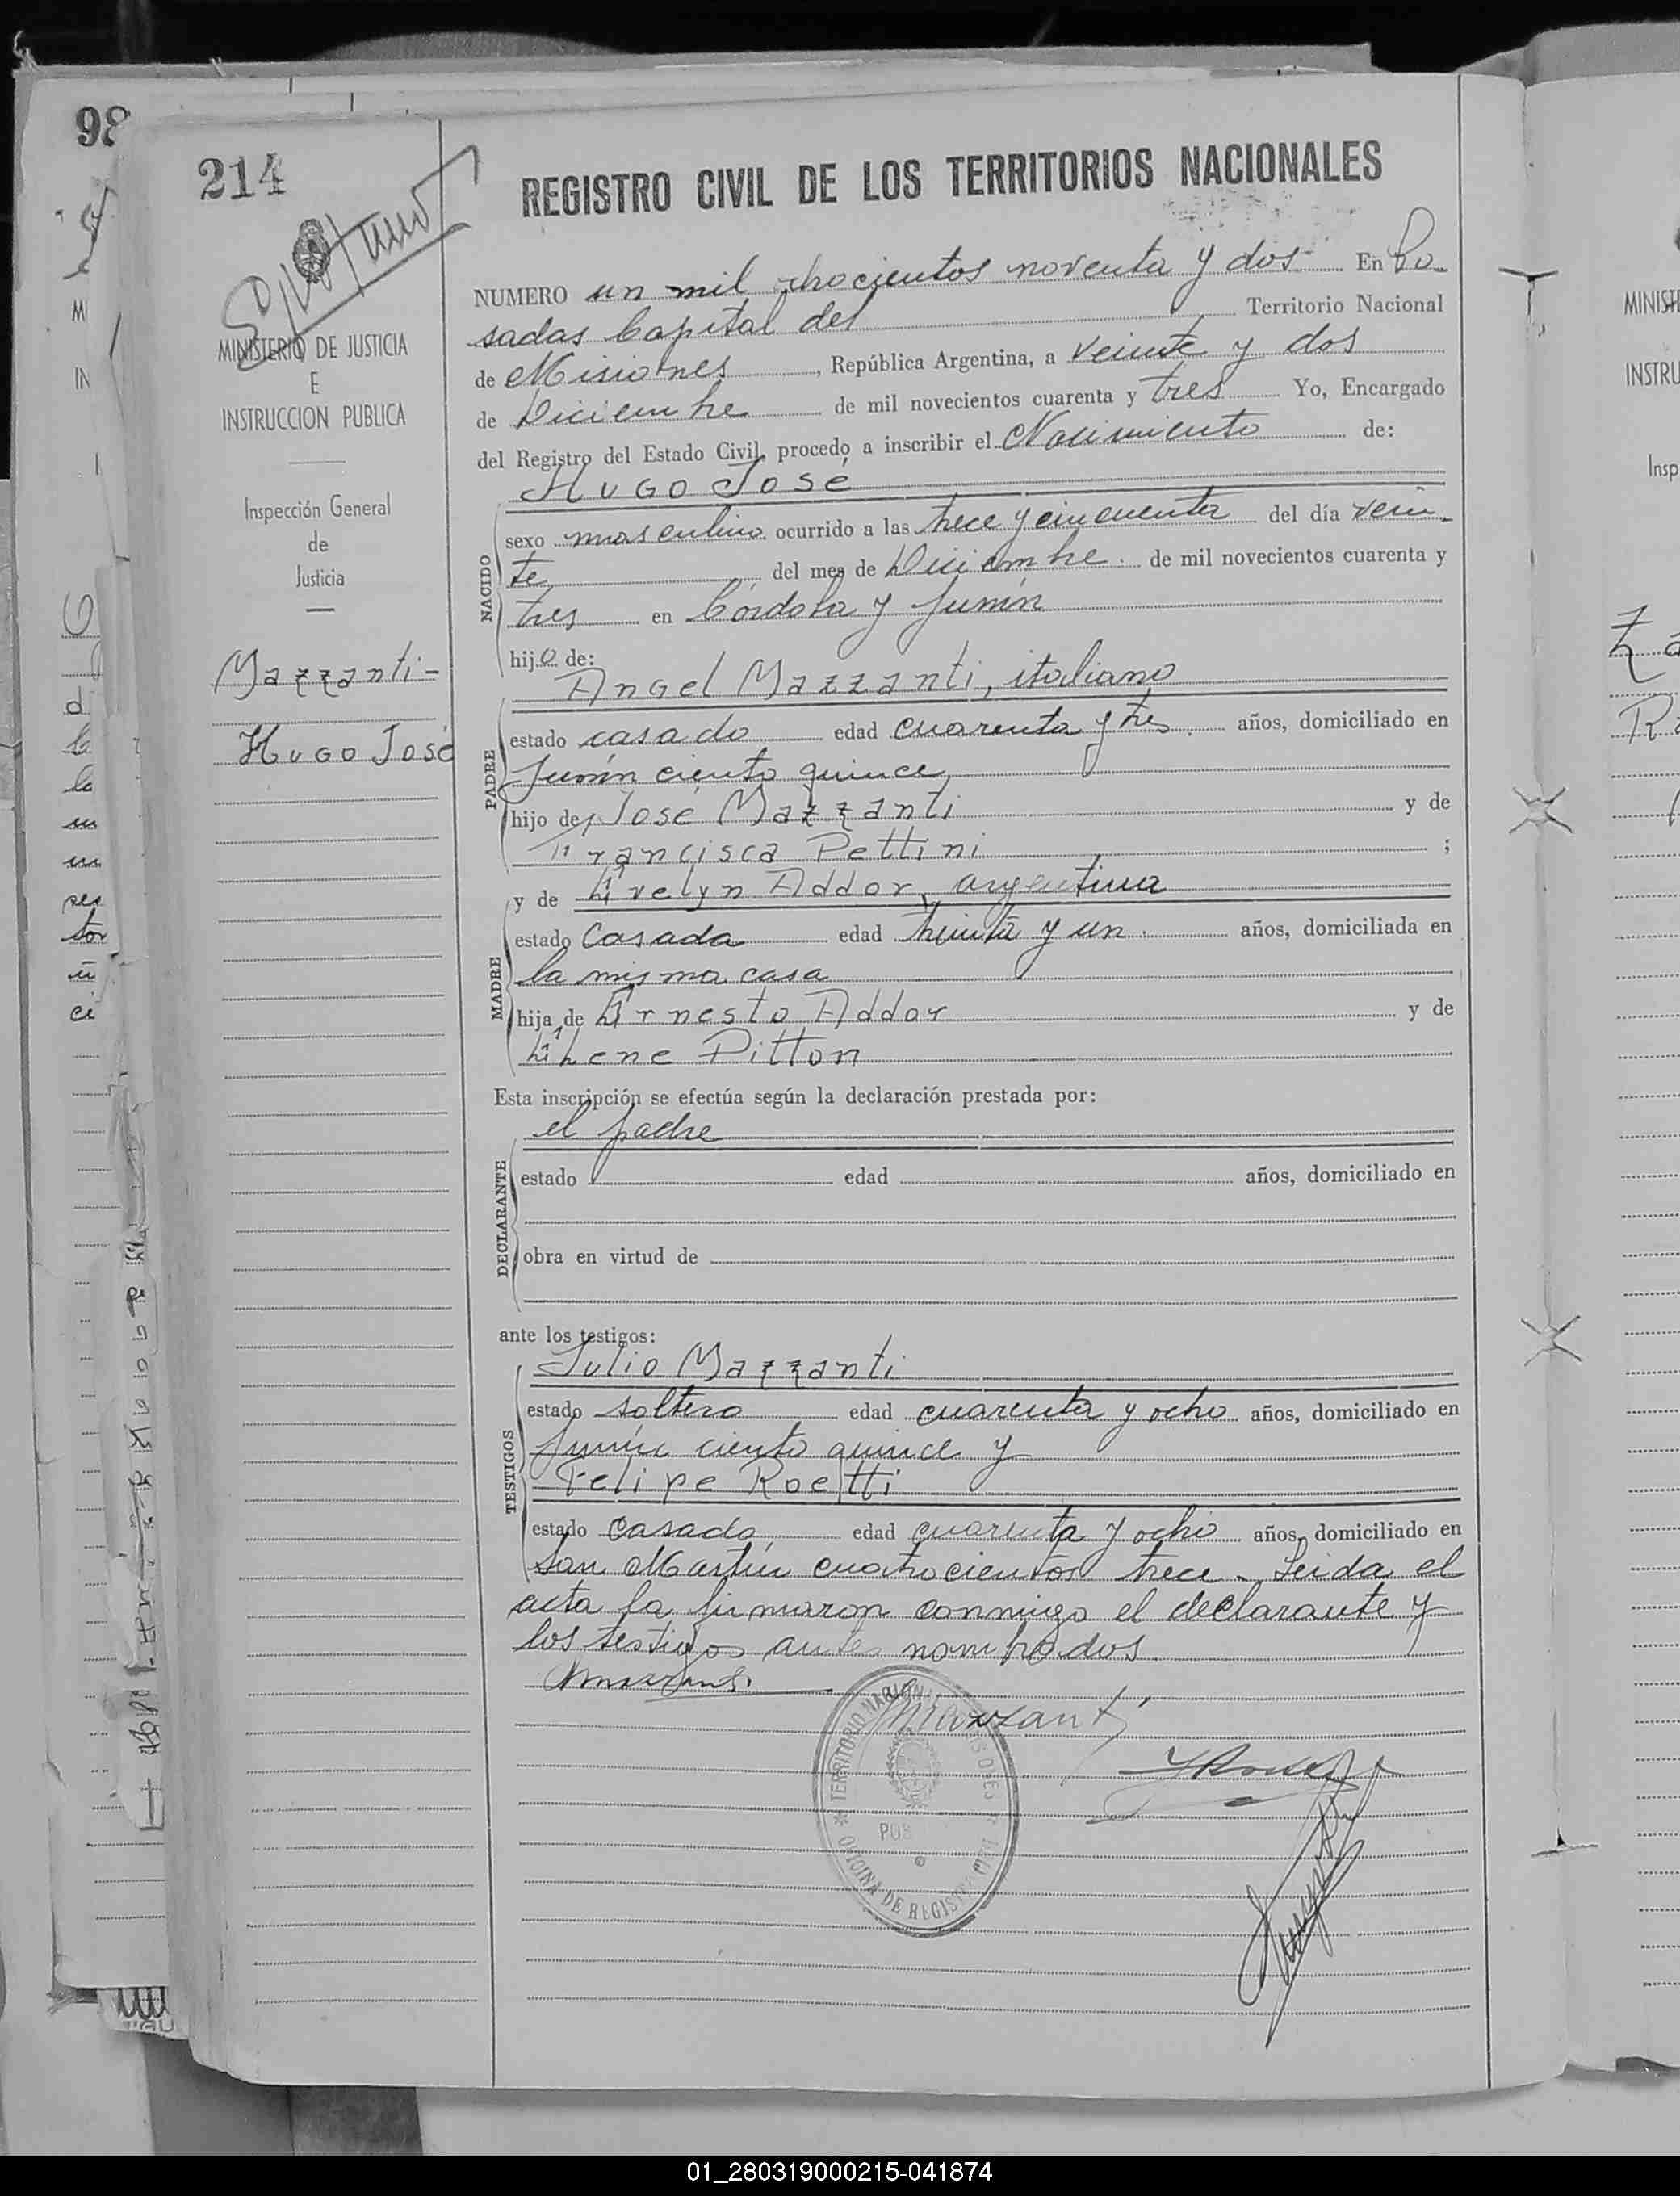 98
214
REGISTRO CIVIL DE LOS TERRITORIOS NACIONALES
MINISTERIO DE JUSTICIA
E
INSTRUCCION PUBLICA
Inspección General
de
Justicia
Mazzanti-
Hugo José
NUMERO un mil ochocientos noventa y dos En Po-
sadas Capital del Territorio Nacional
de Misiones, República Argentina, a veinte y dos
de Diciembre de mil novecientos cuarenta y tres Yo, Encargado
del Registro del Estado Civil, procedo a inscribir el Nacimiento de:
Hugo José
NACIDO
sexo masculino ocurrido a las trece y cincuenta del día vein-
te del mes de Diciembre de mil novecientos cuarenta y
tres en Córdoba y Junín
hijo de:
Angel Mazzanti, italiano
PADRE
estado casado edad cuarenta y tres años, domiciliado en
Junín ciento quince
hijo de José Mazzanti y de
Francisca Pettini ;
y de Evelyn Addor, argentina
MADRE
estado casada edad treinta y un años, domiciliada en
la misma casa
hija de Ernesto Addor y de
Elene Pitton
Esta inscripción se efectúa según la declaración prestada por:
el padre
DECLARANTE
estado edad años, domiciliado en
obra en virtud de
ante los testigos:
Julio Mazzanti
TESTIGOS
estado soltero edad cuarenta y ocho años, domiciliado en
Junín ciento quince y
Felipe Roetti
estado casado edad cuarenta y ocho años, domiciliado en
San Martín cuatrocientos trece. Leida el
acta la firmaron conmigo el declarante y
los testigos antes nombrados.
Mazzanti
TERRITORIO NACIONAL
POS
OFICINA DE REGISTRO CIVIL
MINIST
INSTRU
Insp
01_280319000215-041874